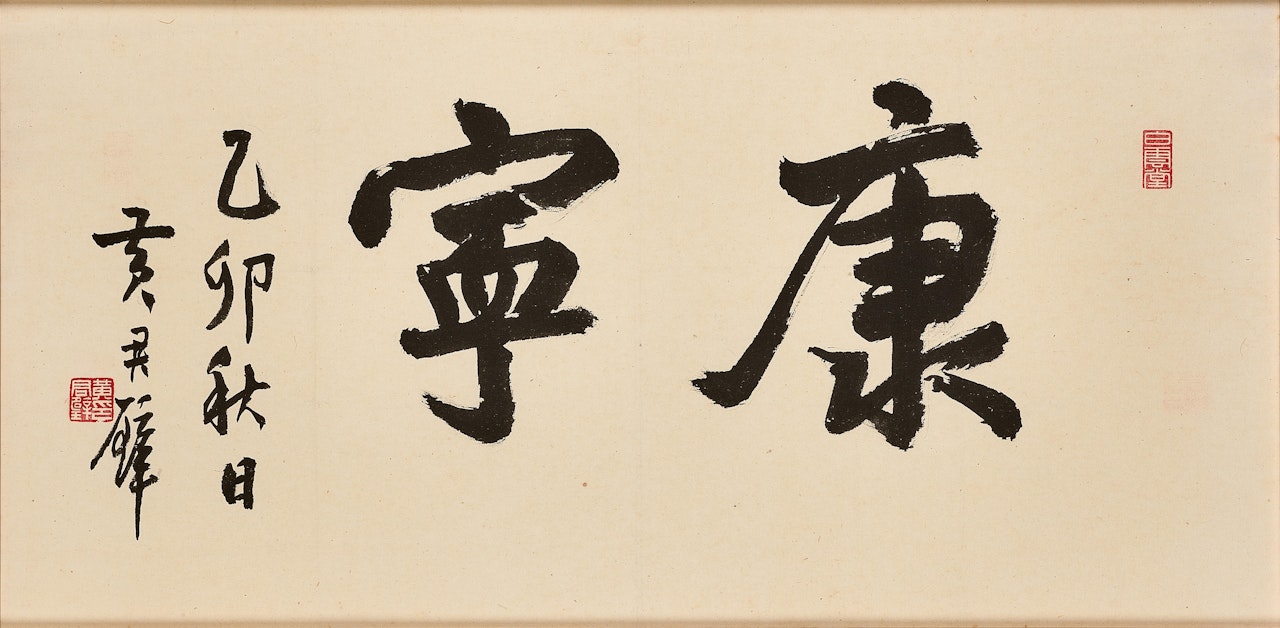 康寧
乙卯秋日
黃君璧
白雲堂
黃君璧